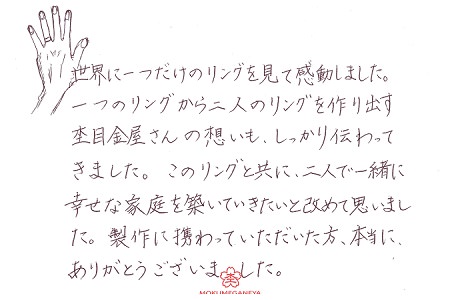 世界に一つだけのリングを見て感動しました。
一つのリングから二人のリングを作り出す
杢目金屋さんの想いも、しっかり伝わって
きました。このリングと共に、二人で一緒に
幸せな家庭を築いていきたいと改めて思いまし
た。製作に携わっていただいた方、本当に、
ありがとうございました。
MOKUMEGANEYA